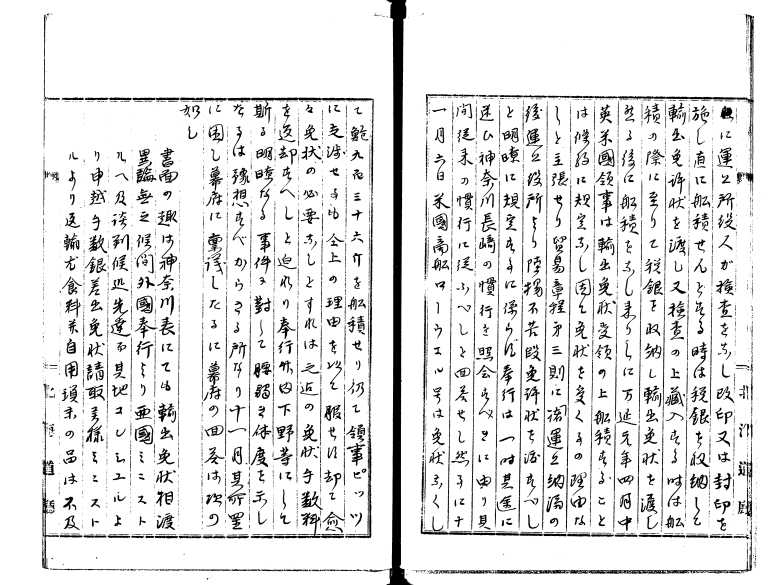 に運上所役人が検査をなし改印又は封印を
施し直に船積せんとする時は税銀を収納して
輸出免許状を渡し又検査の上蔵入する時は船
積の際に至りて税銀を収納し輸出免状を渡し
然る後に船積をなし来りしに万延元年四月中
英米国領事は輸出免状受領の上船積すること
は條約に規定なし因て免状を受くるの理由な
しと主張せり貿易章程第三則に運上納済の
後運上役所より陸揚不苦段免許状を渡すべし
と明瞭に規定するに係らず奉行は一時其意に
従ひ神奈川長崎の慣行を照会すべきに由り其
間従来の慣行に従ふべしと回答せし然るに十
一月六日米国商船ローウエル号は免状なくし
て鮑九百三十六斤を船積せり仍て領事ピッツ
に支渉せるも全上の理由を以て服せず却て愈
々免状の必要なしとすれは之迄の免状手数料
を返却すべしと迫れり奉行竹内下野等にして
斯る明瞭なる事件に対して軟弱な体度を示し
たるは想すべからざる所なり十一月其所置
に困し幕府に稟議したるに幕府の回答は次の
如し
書面の趣は神奈川表にても輸出免状相渡
異論無之候間外国奉行より亜国ミニスト
ルへ及談判候処先達而其地コンシュルよ
り申越手数銀差出免状請取候様ミニスト
ルより返輸尤食料并自用瑣末の品は不及
北海道庁